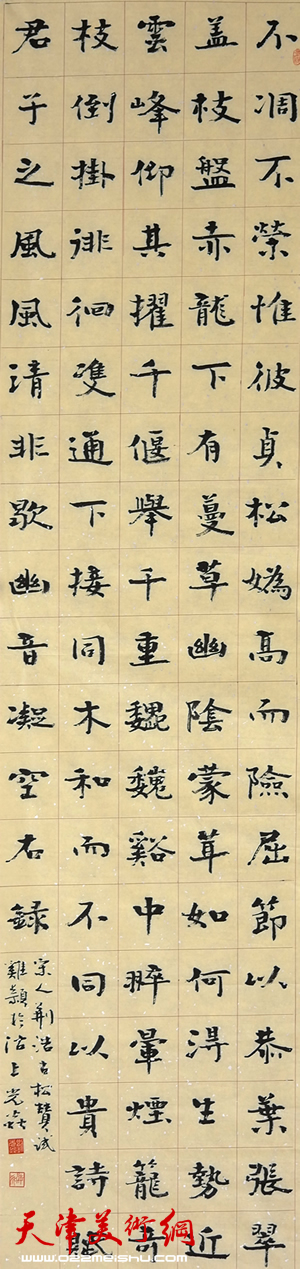 不凋不榮惟彼貞松媯高而險屈節以恭葉張翠
盖枝盤赤龍下有蔓草幽陰蒙茸如何得生勢近
雲峰仰其擢千偃舉千重巍巍谿中晬暈煙籠奇
枝倒掛徘徊變通下接同木和而不同以貴詩賦
君子之風風清非歇幽音凝空右録
宋人荆浩古松贊試
雞穎於沽上光焱
天津美術網
www.022meishu.com